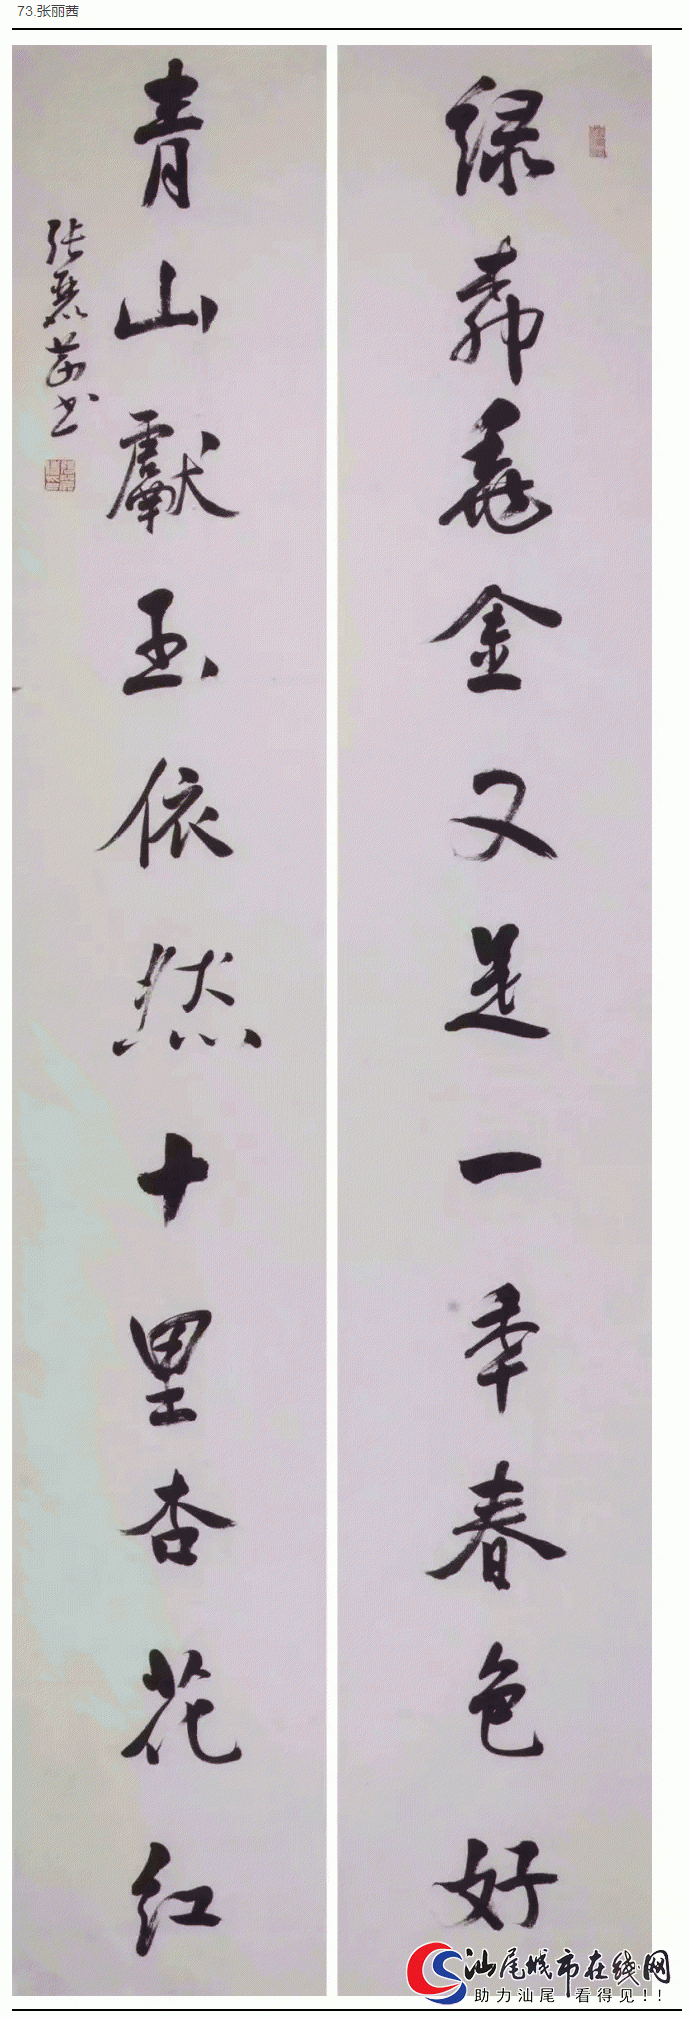 73.张丽茜
绿柳金又是一秊春色好
青山獻玉依然十里杏花红
张麗茜书
汕尾城市在线网
助力汕尾 看得见!!